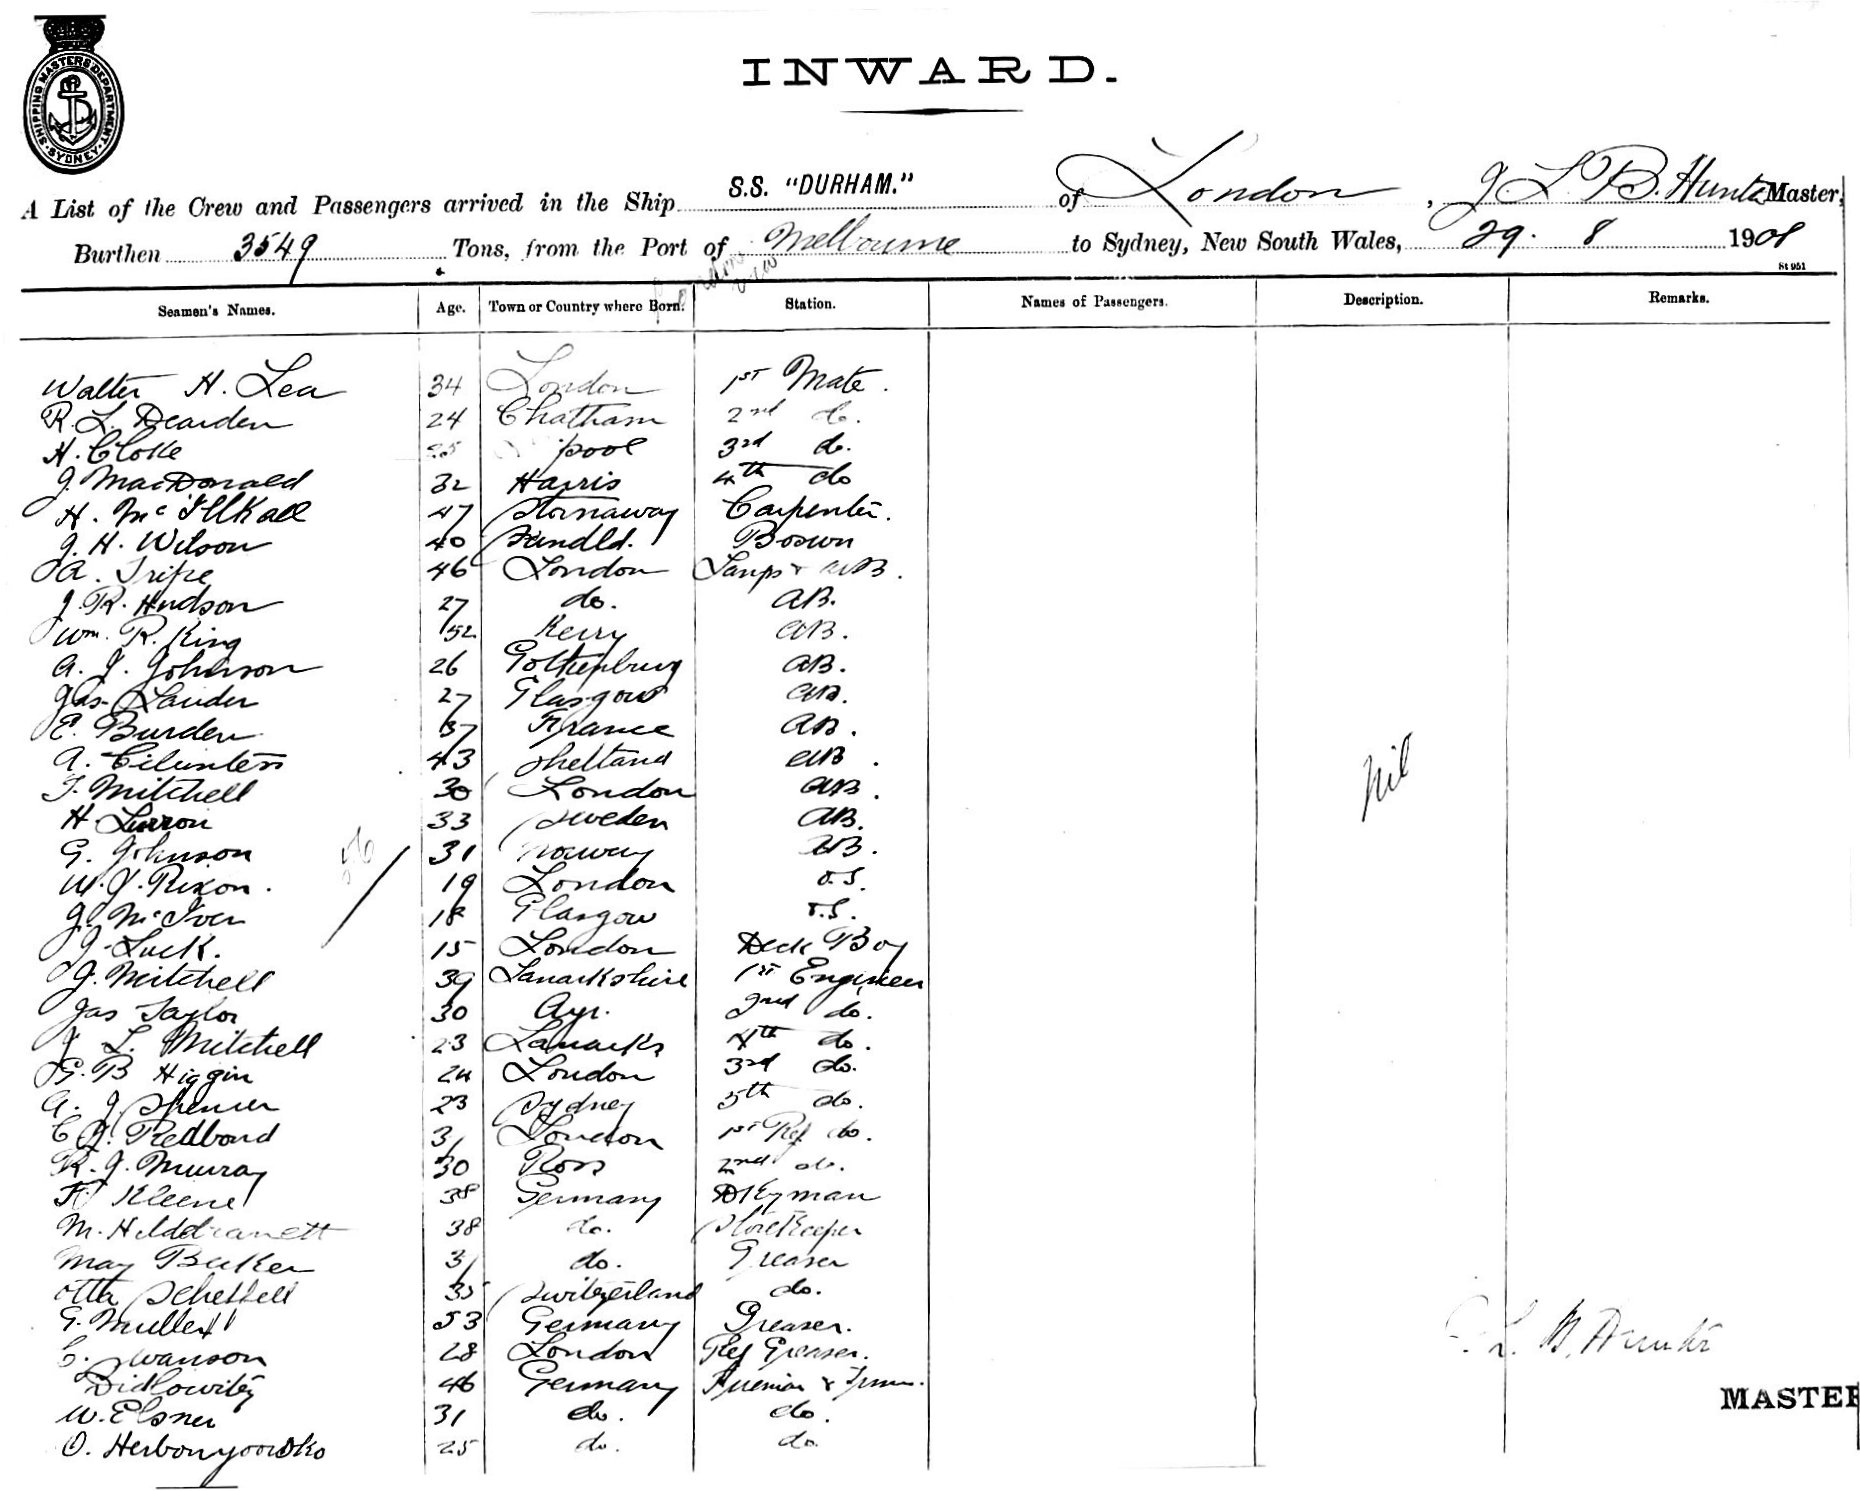 SHIPPING MASTERS DEPARTMENT · SYDNEY ·
INWARD.
A List of the Crew and Passengers arrived in the Ship S.S. "DURHAM." of London, J L. B. Hunter Master,
Burthen 3549 Tons, from the Port of Melbourne to Sydney, New South Wales, 29. 8 1908
St 951
Seamen's Names. Age. Town or Country where Born. Station. Names of Passengers. Description. Remarks.
Walter H. Lea 34 London 1st Mate.
R. L. Dearden 24 Chatham 2nd do.
H. Cloke pool 3rd do.
J. MacDonald 32 Harris 4th do
H. 47 Stornaway Carpenter.
J. H. Wilson 40 Sundld. Bosun
A. Tripe 46 London Lamps & AB.
J. R. Hudson 27 do. AB.
Wm. R. King 52 Kerry AB.
A. J. Johnson 26 Gothenburg AB.
Jas. Lauder 27 Glasgow AB.
E. Burden 37 France AB.
A. 43 Shetland AB.
T. Mitchell 30 London AB.
H 33 Sweden AB.
G. Johnson 31 Norway AB.
W. J. Rixon. 19 London O.S.
J. McIver 18 Glasgow O.S.
J. Luck. 15 London Deck Boy
J. Mitchell 39 Lanarkshire 1st Engineer
Jas Taylor 30 Ayr. 2nd do.
J L. Mitchell 23 Lanarks 4th do.
G. B Higgin 24 London 3rd do.
A. J. Spencer 23 Sydney 5th do.
C J. Redbond 31 London 1st Ref do.
R. J. Murray 30 Ross 2nd do.
F. Kleene 38 Germany Dkyman
M. 38 do. Storekeeper
Max Becker 31 do. Greaser
Otto 35 Switzerland do.
G. Mullert 53 Germany Greaser.
C. Swanson 28 London Ref Greaser.
46 Germany Fireman & Trimr.
W. Elsner 31 do. do.
O. 25 do. do.
Nil
J. L. B. Hunter
MASTER